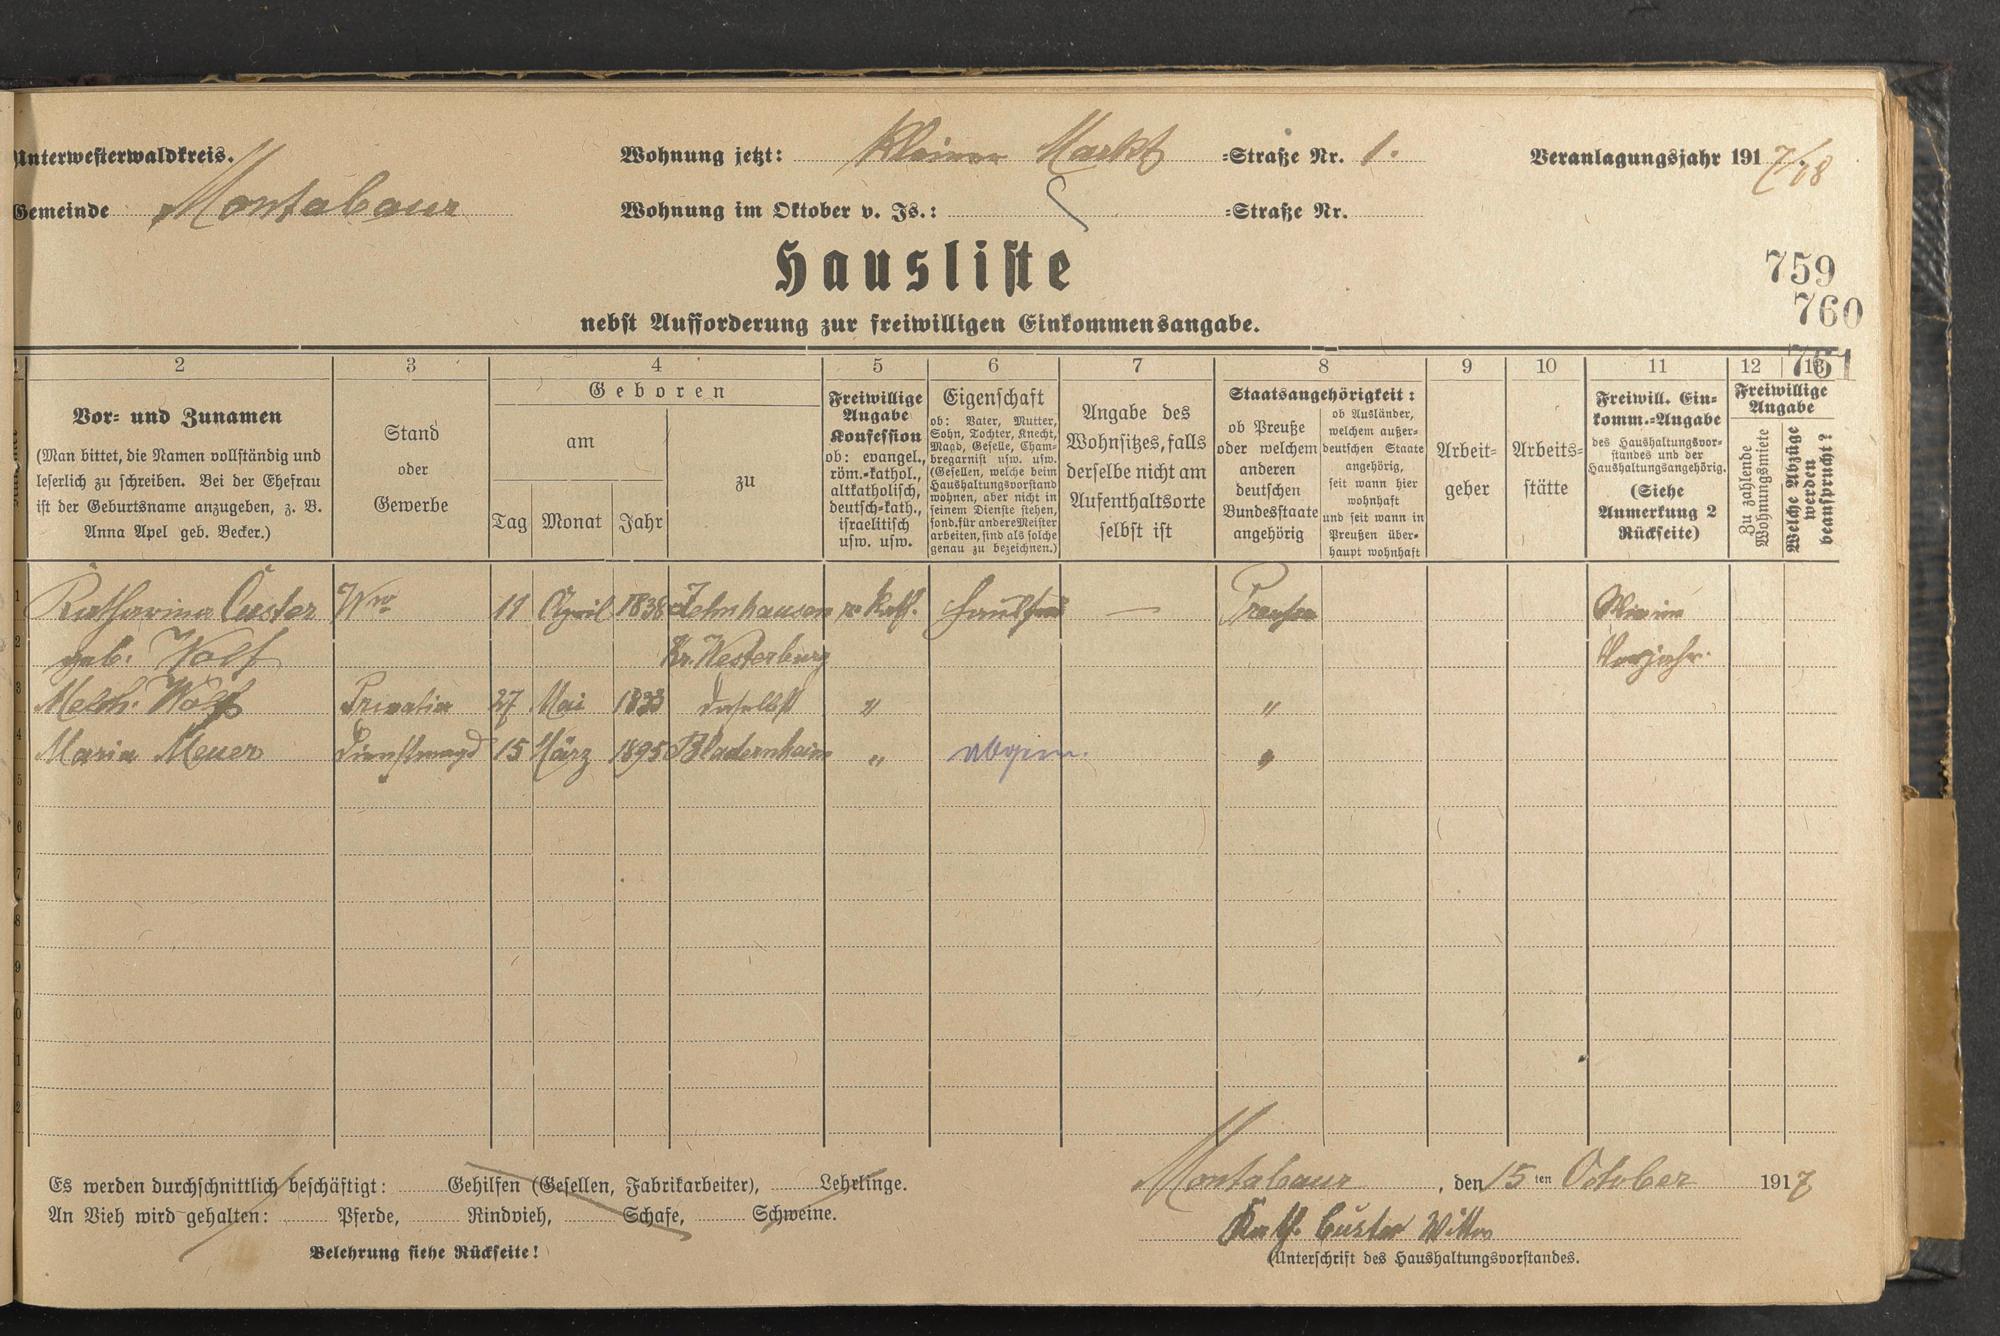 Unterwesterwaldkreis.
Wohnung jetzt: Kleiner Markt =Straße Nr. 1.
Veranlagungsjahr 1917/18
Gemeinde Montabaur
Wohnung im Oktober v. Js.: =Straße Nr.
Hausliste
759
760
761
nebst Aufforderung zur freiwilligen Einkommensangabe.
1 2 3 4 5 6 7 8 9 10 11 12 13
Vor- und Zunamen
(Man bittet, die Namen vollständig und
leserlich zu schreiben. Bei der Ehefrau
ist der Geburtsname anzugeben, z. B.
Anna Apel geb. Becker.)
Stand
oder
Gewerbe
Geboren
am
Tag Monat Jahr
zu
Freiwillige
Angabe
Konfession
ob: evangel.,
röm.-kathol.,
altkatholisch,
deutsch-kath.,
israelitisch
usw. usw.
Eigenschaft
ob: Vater, Mutter,
Sohn, Tochter, Knecht,
Magd, Geselle, Cham-
bregarnist usw. usw.
(Gesellen, welche beim
Haushaltungsvorstand
wohnen, aber nicht in
seinem Dienste stehen,
sond. für andere Meister
arbeiten, sind als solche
genau zu bezeichnen.)
Angabe des
Wohnsitzes, falls
derselbe nicht am
Aufenthaltsorte
selbst ist
Staatsangehörigkeit:
ob Preuße
oder welchem
anderen
deutschen
Bundesstaate
angehörig
ob Ausländer,
welchem außer-
deutschen Staate
angehörig,
seit wann hier
wohnhaft
und seit wann in
Preußen über-
haupt wohnhaft
Arbeit-
geber
Arbeits-
stätte
Freiwill. Ein-
komm.-Angabe
des Haushaltungsvor-
standes und der
Haushaltungsangehörig.
(Siehe
Anmerkung 2
Rückseite)
Freiwillige
Angabe
Zu zahlende
Wohnungsmiete
Welche Abzüge
werden
beansprucht?
1 Katharina Custer Wwe 11 April 1838 Zehnhausen r. kath. — Preußen Wie im
2 geb. Wolf Kr. Westerburg Vorjahr.
3 Melch. Wolf Privatier 27 Mai 1833 daselbst " "
4 Maria Meuer Dienstmagd 15 März 1895 Bladernheim " "
5
6
7
8
9
0
1
2
Es werden durchschnittlich beschäftigt: Gehilfen (Gesellen, Fabrikarbeiter), Lehrlinge.
An Vieh wird gehalten: Pferde, Rindvieh, Schafe, Schweine.
Belehrung siehe Rückseite!
Montabaur, den 15ten October 1917
Kath. Custer Witwe
(Unterschrift des Haushaltungsvorstandes.